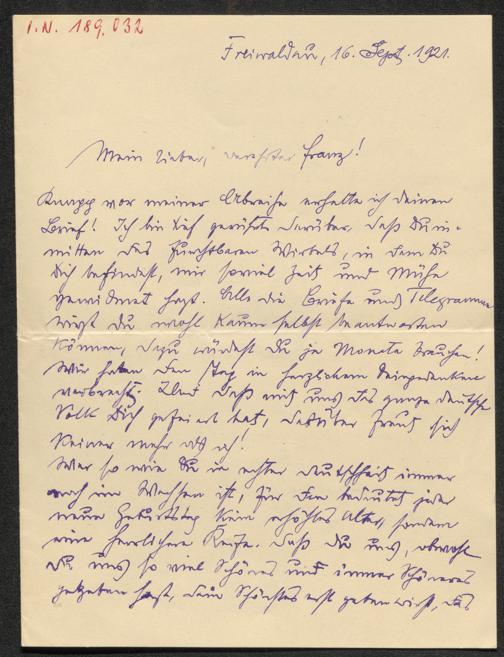 I.N. 189.032
Freiwaldau, 16. Sept. 1921.
Mein lieber, verehrter Franz!
Knapp vor meiner Abreise erhalte ich deinen
Brief! Ich bin tief gerührt darüber, daß Du in-
mitten des furchtbaren Wirbels, in dem Du
Dich befindest, mir soviel Zeit und Mühe
gewidmet hast. Alle die Briefe und Telegramme
wirst du wohl kaum selbst beantworten
können, dazu würdest Du ja Monate brauchen!
Wir haben den Tag in herzlichem Deingedenken
verbracht. Und daß mit uns das ganze deutsche
Volk Dich gefeiert hat, darüber freut sich
keiner mehr als ich!
Wer so wie Du in echter Deutschheit immer
noch im Wachsen ist, für den bedeutet jeder
neue Geburtstag kein erhöhtes Alter, sondern
eine herrlichere Reife. Daß du uns, obwohl
Du uns so viel Schönes und immer Schöneres
gegeben hast, dein Schönstes erst geben wirst, das